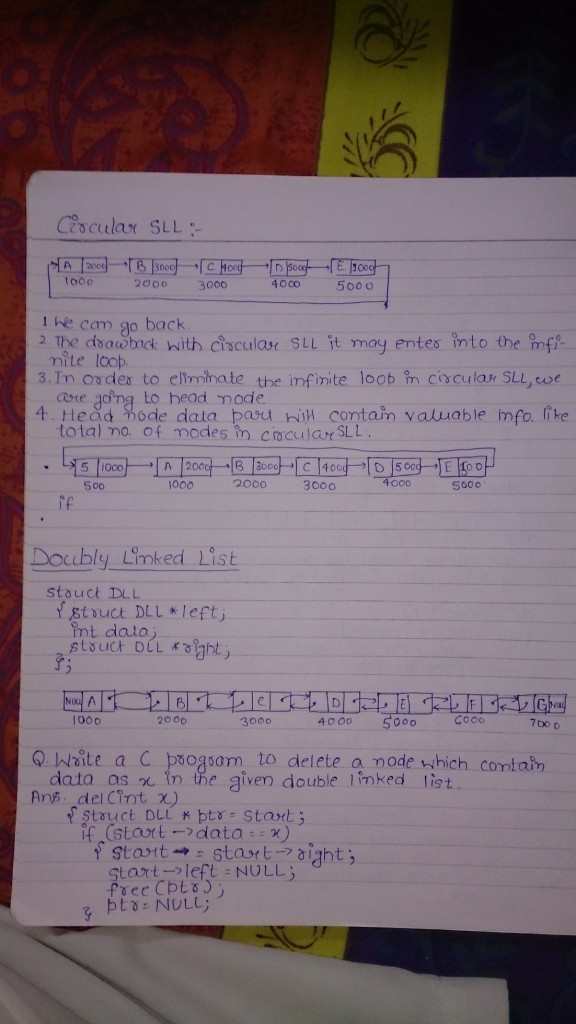 Circular SLL :-
A 2000 B 3000 C 4000 D 5000 E
1000 2000 3000 4000 5000
1. We can go back.
2 The drawback with circular SLL it may enter into the infi-
nite loop.
3. In order to eliminate the infinite loop in circular SLL, we
are going to head node.
4. Head node data part will contain valuable info. like
total no. of nodes in circular SLL.
5 1000 A 2000 B 3000 C 4000 D 5000 E
500 1000 2000 3000 4000 5000
if
Doubly Linked List
struct DLL
{ struct DLL * left;
int data;
struct DLL * right;
};
NULL A B C D E F G NULL
1000 2000 3000 4000 5000 6000 7000
Q. Write a C program to delete a node which contain
data as x in the given double linked list.
Ans. del(int x)
{ struct DLL * ptr = start;
if (start -> data == x)
{ start = start -> right;
start -> left = NULL;
free (ptr);
ptr = NULL;
}